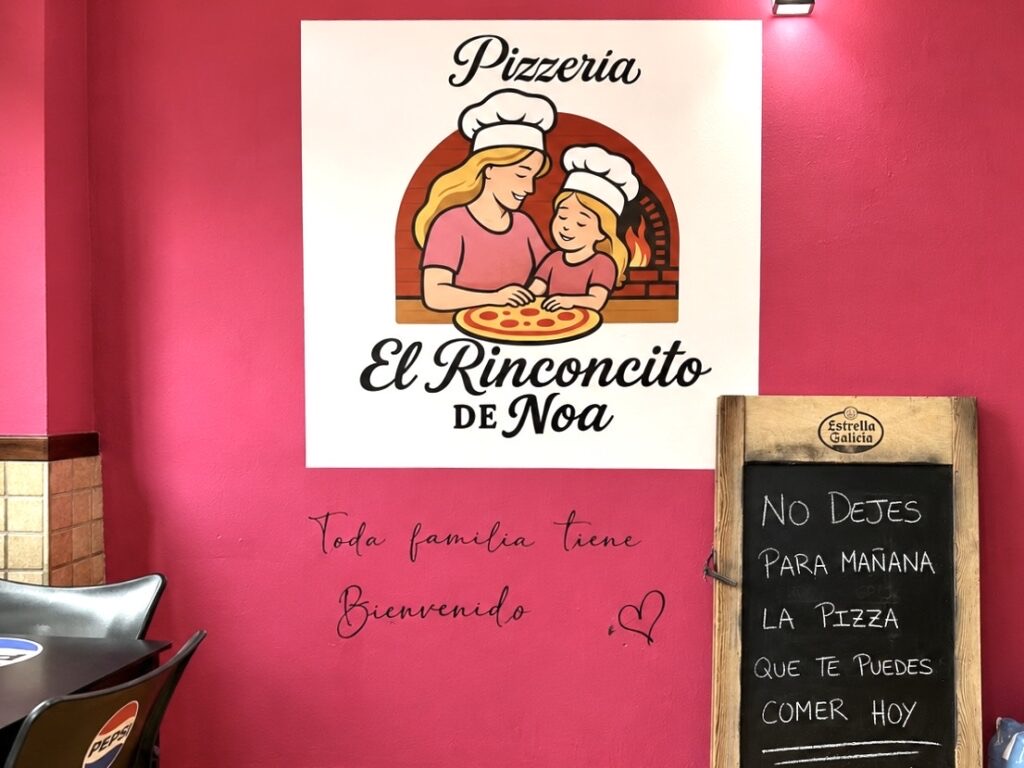 Pizzería
El Rinconcito
DE Noa
Toda familia tiene
Bienvenido
Estrella
Galicia
NO DEJES
PARA MAÑANA
LA PIZZA
QUE TE PUEDES
COMER HOY
PEPSI